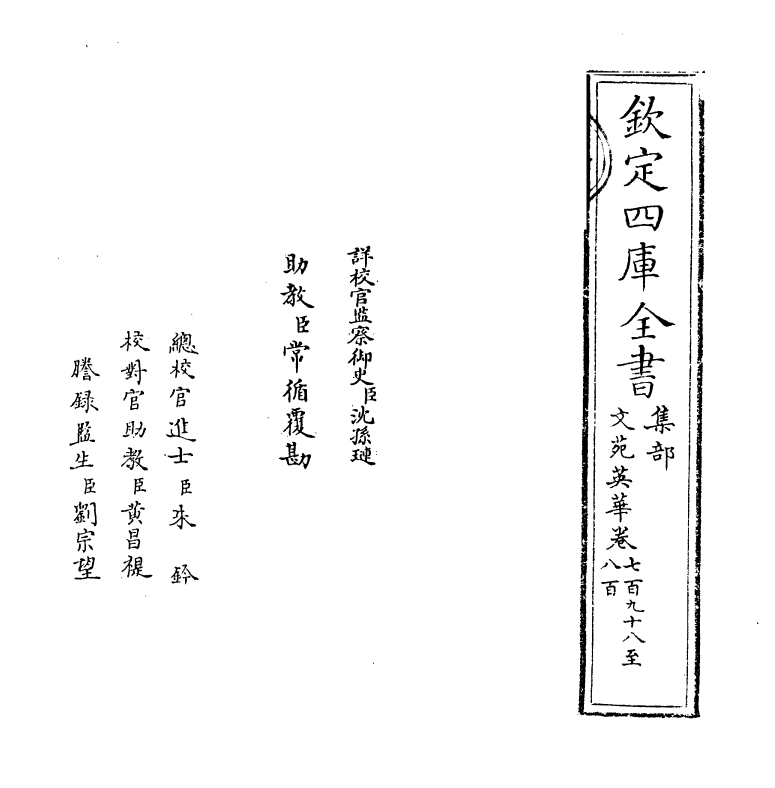 欽定四庫全書
集部
文苑英華卷七百九十八至
八百
詳校官監察御史臣沈孫璉
助教臣常循覆勘
總校官進士臣朱鈐
校對官助教臣黄昌禔
謄録監生臣劉宗望